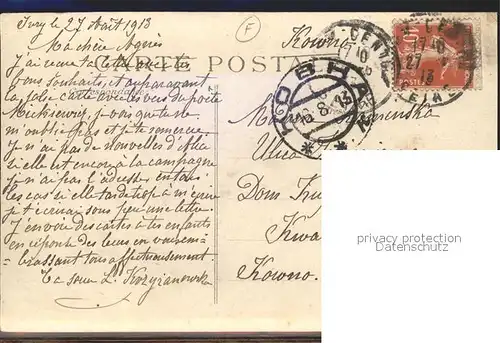 Ivry le 27 Août 1913
Ma chère Agnès
CARTE POSTALE
J'ai reçu ta carte avec tes
bons souhaits, et auparavant
la jolie carte avec les vers du poète
Mickiewicz, je vois que tu ne
m'oublie pas et je te remercie.
Je n'ai pas de nouvelles d'
si elle est encor à la campagne
je n'ai pas l'adresse, en tous
les cas si elle tarde trop à m'écrire
je t'écrirai sous peu une lettre.
J'envoie des cartes à tes enfants
en réponse des leurs en vous em-
brassant tous affectueusement.
Ta sœur L. Krzyżanowska
Kowno
Ulica
Dom
Kowno.
KOBHA
10
POSTES
17 10
27
13
privacy protection
Datenschutz
F